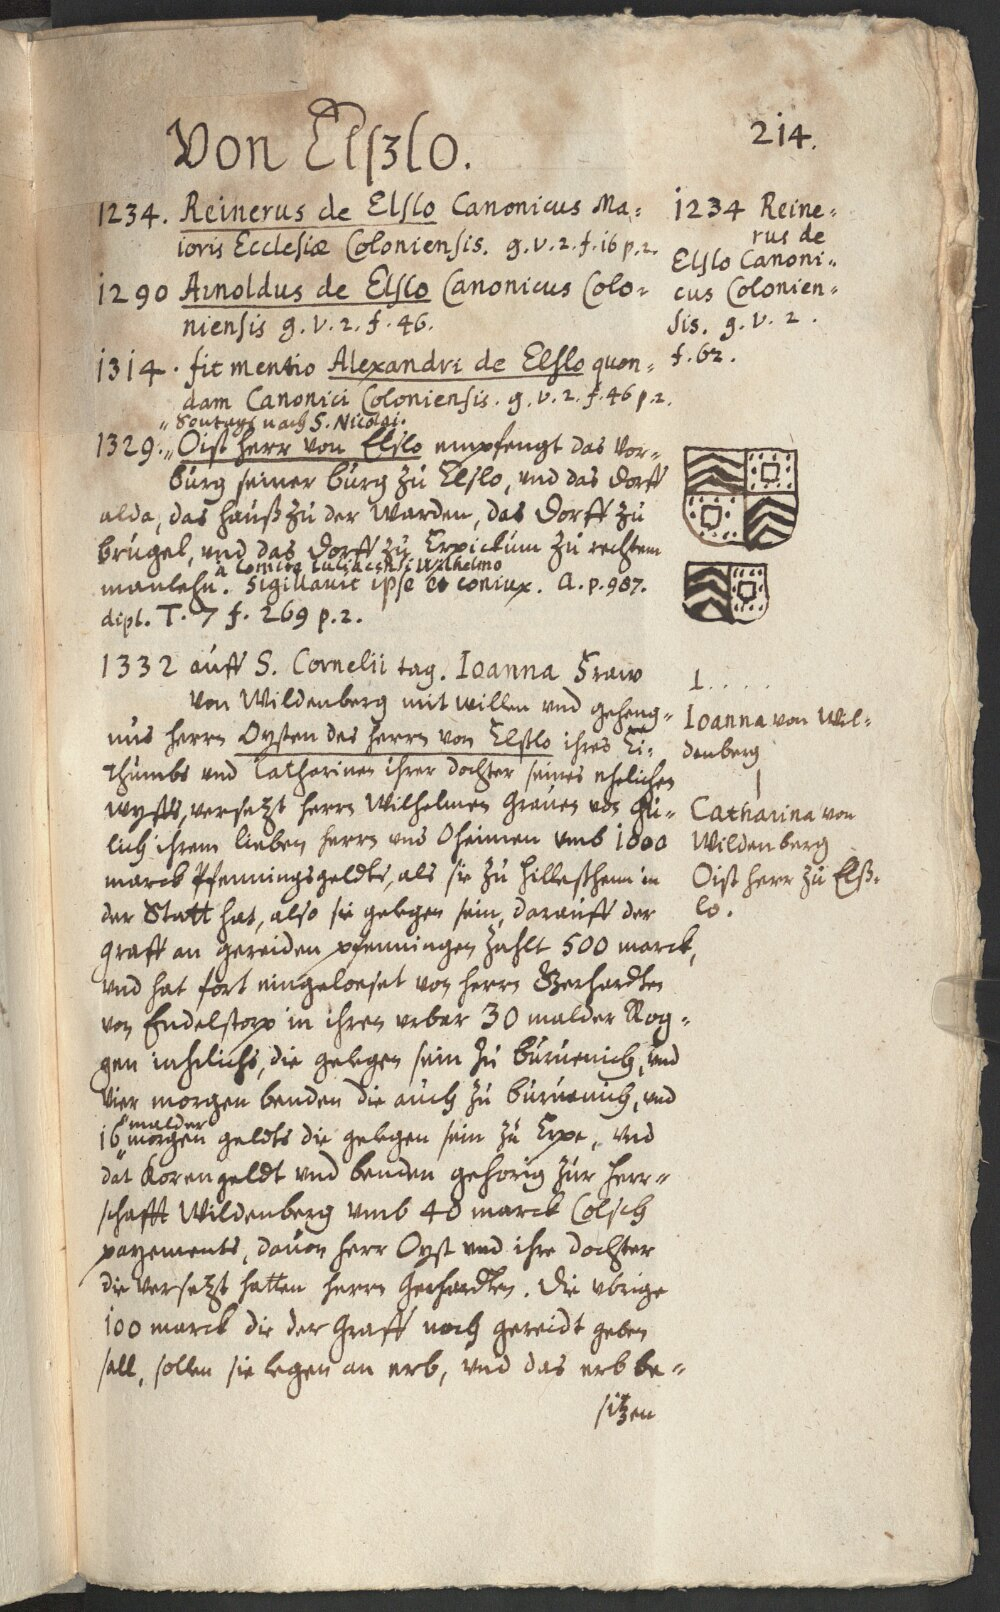 Von Elszlo.
214.
1234. Reinerus de Elslo Canonicus Ma:
ioris Ecclesiæ Coloniensis. g.v.2.f.16 p.2.
1290 Arnoldus de Elslo Canonicus Colo:
niensis g.v.2.f.46.
1314. fit mentio Alexandri de Elslo quon:
dam Canonici Coloniensis. g.v.2.f.46 p.2.
Sontags nach S. Nicolai.
1329. Oist herr von Elslo empfengt das Vor:
burg seiner burg zu Elslo, vnd das Dorff
alda, das hauß zu der Warden, das Dorff zu
brugel, vnd das Dorff zu Erpickum zu rechtem
à Comite Iuliacensi Wilhelmo
manlehn. Sigillauit ipse et coniux. A.p.987.
dipl. T.7 f. 269 p.2.
1332 auff S. Cornelii tag. Ioanna Fraw
von Wildenberg mit willen vnd geheng:
nus herrn Oysten des herrn von Elslo ihres Ei:
thumbs vnd Catharinen ihrer dochter seines ehelichen
wyffs, versetzt herrn Wilhelmen Grauen von Gu:
lich ihrem lieben herrn vnd Oheimen vmb 1000
marck Pfenningsgeldts, als sie zu Hilleßheim in
der Statt hat, also sie gelegen sein, darauff der
Graff an gereiden pfenningen zahlt 500 marck,
vnd hat fort eingeloeset von herrn Gerhardten
von Endelstorp in ihren vrber 30 malder Rog:
gen iahrlichs, die gelegen sein zu buruenich, vnd
Vier morgen benden die auch zu buruenich, vnd
malder
16 morgen geldts die gelegen sein zu Erpe, vnd
dat Korengeldt vnd benden gehorig zur herr:
schafft Wildenberg vmb 40 marck Colsch
payements, dauon herr Oyst vnd ihre dochter
die versetzt hatten herrn Gerhardten. Die vbrige
100 marck die der Graff noch gereidt geben
sall, sollen sie legen an erb, vnd das erb be:
sitzen
1234 Reine:
rus de
Elslo Canoni:
cus Colonien:
sis. g.v.2.
f.62.
1.....
Ioanna von Wil:
denberg
Catharina von
Wildenberg
Oist herr zu Elß:
lo.